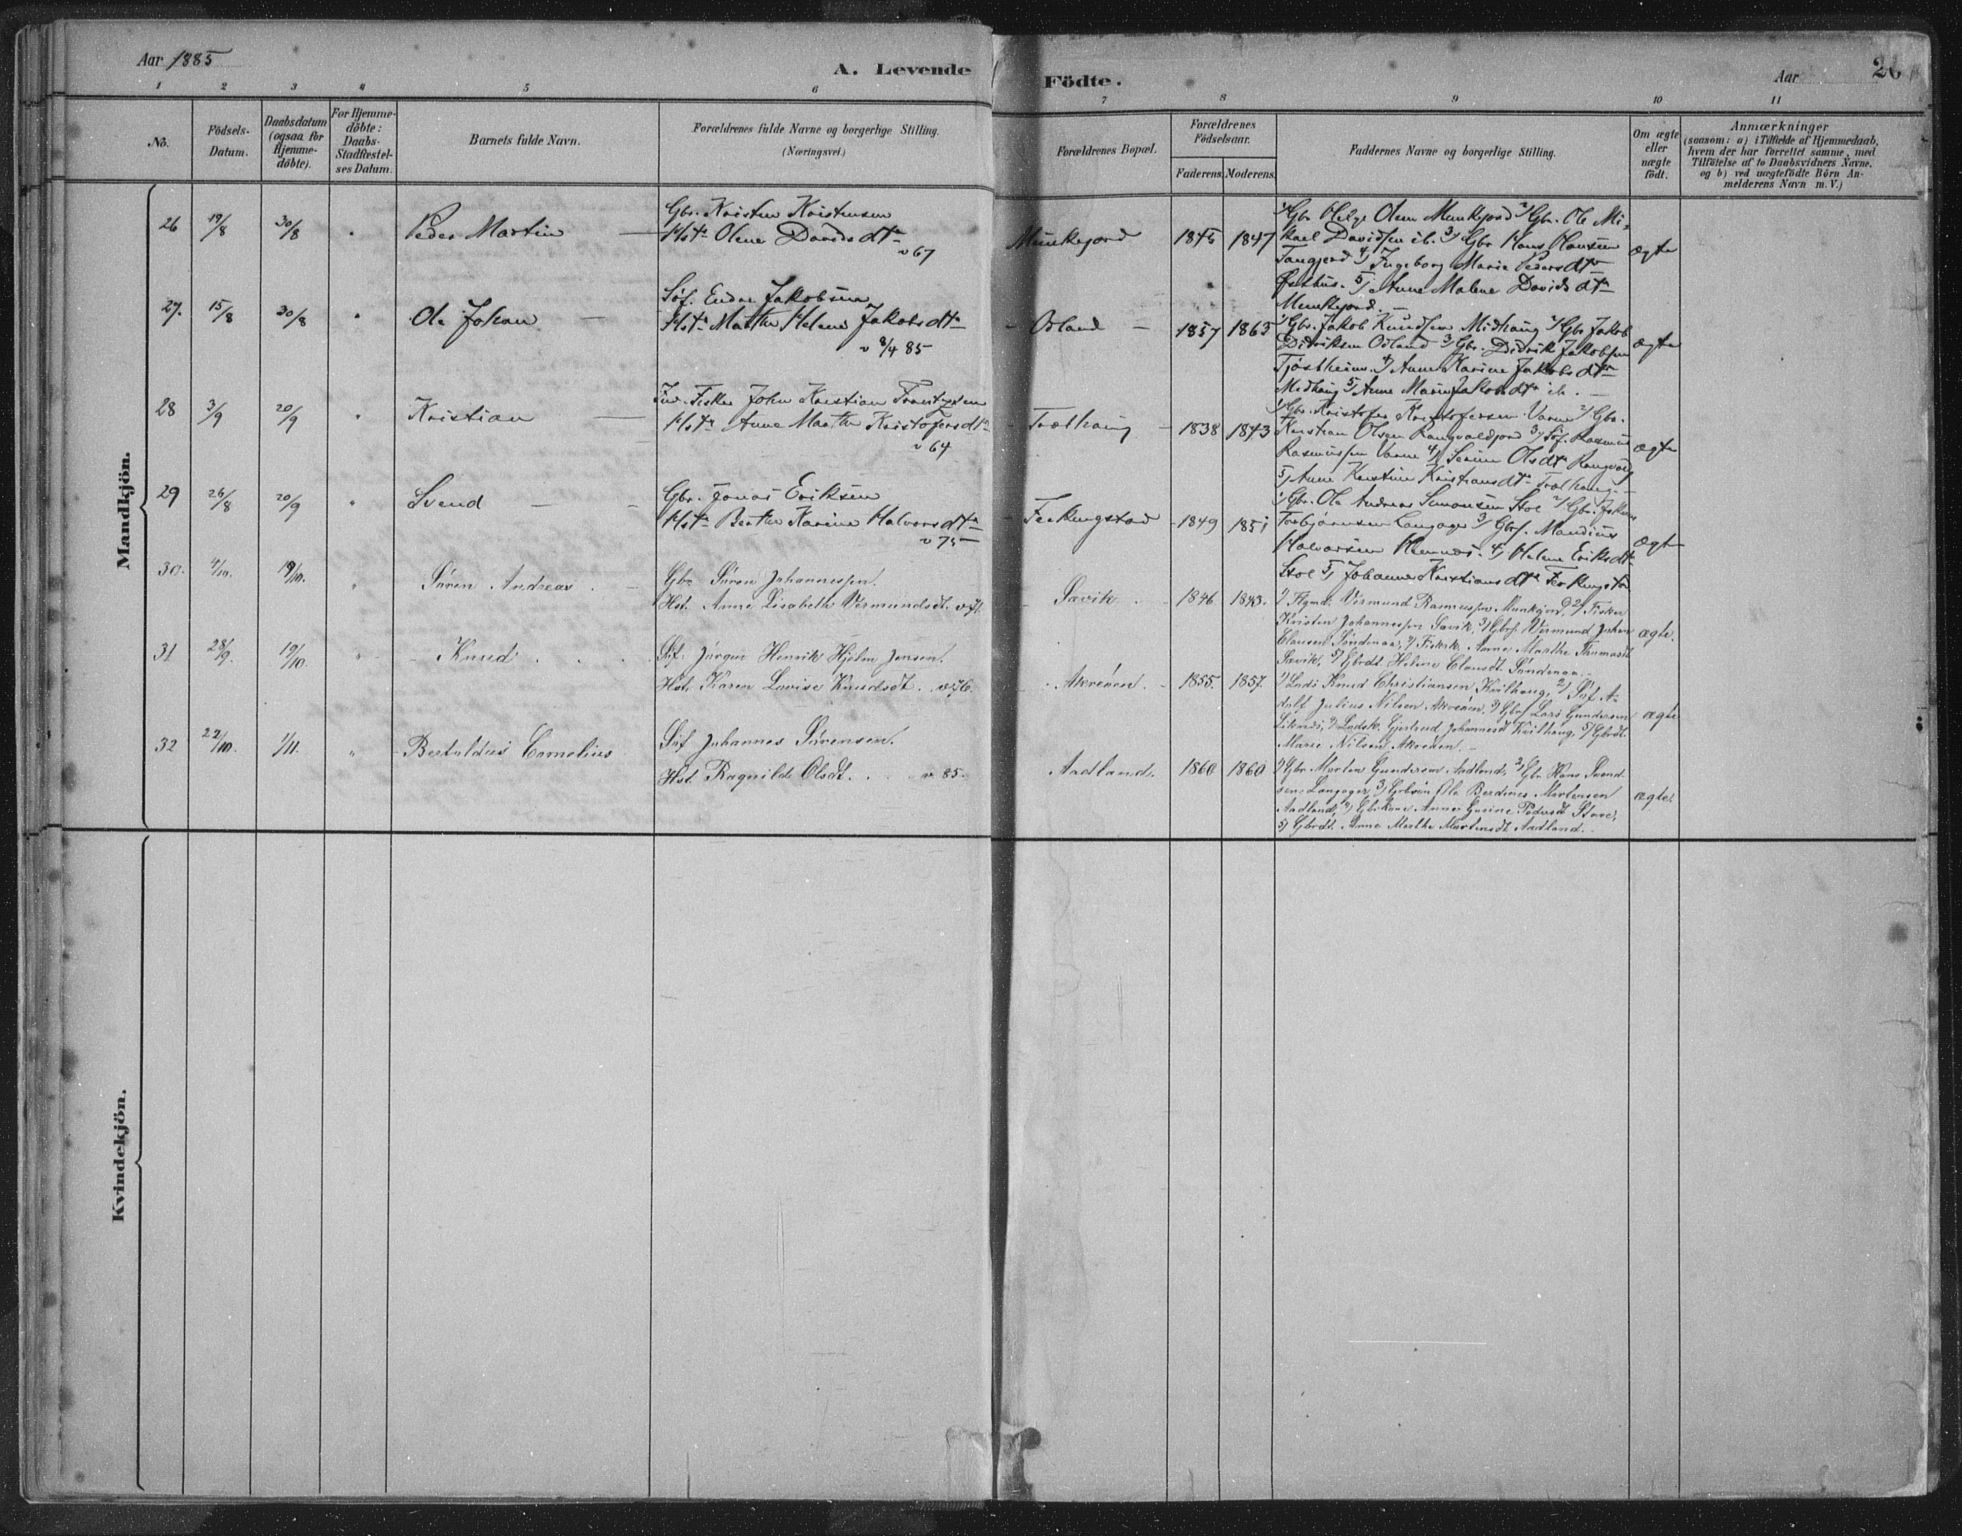 Aar 1885
A. Levende
Födte.
Aar
26
1 2 3 4 5 6 7 8 9 10 11
No.
Födsels-
Datum.
Daabsdatum
(ogsaa for
Hjemme-
döbte).
For Hjemme-
döbte:
Daabs-
Stadfæstel-
ses Datum.
Barnets fulde Navn.
Forældrenes fulde Navne og borgerlige Stilling.
(Næringsvei.)
Forældrenes Bopæl.
Forældrenes
Födselsaar.
Faderens. Moderens.
Faddernes Navne og borgerlige Stilling.
Om ægte
eller
uægte
födt.
Anmærkninger
(saasom: a) i Tilfælde af Hjemmedaab,
hvem der har forrettet samme, med
Tilföielse af to Daabsvidners Navne,
og b) ved uægtefödte Börn An-
melderens Navn m. V.)
Mandkjön.
26 19/8 30/8 " Peder Martin
Gbr. Kristen Kristensen
Hst. Olene Davidsdtr
v 67
Munkejord 1845 1847
1) Gbr Helge Olsen Munkejord 2) Gbr. Ole Mi-
kael Davidsen ib. 3) Gbr Hans Hansen
4) Ingeborg Marie Pedersdtr
Østhus. 5) Anne Malene Davidsdtr
Munkejord. -
ægte
27. 15/8 30/8 " Ole Johan
Søf. Endre Jakobsen
Hst. Marthe Helene Jakobsdtr
v 8/4 85
Odland 1857 1863
1) Gbr. Jakob Knudsen Midhaug 2) Gbr Jakob
Didriksen Odland 3) Gbr. Didrik Jakobsen
Tjøstheim. 4) Anne Karine Jakobsdtr
Midhaug 5) Anne Marie Jakobsdtr ib. -
ægte
28 3/9 20/9 " Kristian
Ind. Fisker John Kristian
Hst. Anne Marthe Kristofersdtr
v 64
Trælhaug 1838 1843
1) Gbr. Kristofer Kristofersen Varne 2) Gbr.
Kristian Olsen 3) Søf. Rasmus
Rasmussen Varne 4) Serine Olsdtr
5) Anne Kristine Kristiansdtr Trælhaug. -
ægte
29 26/8 20/9 " Svend
Gbr. Jonas Eriksen
Hst. Berthe Karine Halvorsdtr
v 75
Ferkingstad 1849 1851
1) Gbr. Ole Andreas Simonsen Stol 2) Gbr.
Torbjørnsen Langager 3) Gbrs.
Halvorsen 4) Helene Eriksdtr
Stol 5) Johanne Kristiansdtr Ferkingstad
ægte
30. 4/10. 19/10. " Søren Andreas.
Gbr Søren Johannessen.
Hst. Anne Lisabeth Vermundsdt.
Sævik. 1846 1843.
1) Vermund Rasmussen Munkejord, 2) Fisker
Kristen Johannessen Sævik, 3) Gbrs. Vermund Johan
Clausen Søndenaa, 4) Fiskrk Anne Marthe Thomasdt
Sævik, 5) Gbrdt. Helene Clausdt Søndenaa. -
ægte.
31 28/9. 19/10. " Knud
Søf. Jørgen Henrik Hjelm Jensen.
Hst. Karen Lovise Knudsdt.
Akreøen. 1855. 1857.
1) Lods Knud Christiansen Kvilhaug, 2) Søf. A-
dolf Julius Nilsen Akreøen, 3) Gbrs Lars Gundersen
4) Lodsk. Gjertrud Johannesd Kvilhaug, 5) Gbrdt.
Marie Nilsen Akreøen. -
ægte
32 22/10. 1/11. " Bertoldus Cornelius
Søf Johannes Sørensen.
Hst Ragnilde Olsdt. v. 85.
Aadland. 1860 1860
1) Gbr Morten Gundersen Aadland, 2) Gbr Hans Svend-
sen Langager, 3) Gbrsøn Ole Berdines Mortensen
Aadland, 4) Gbrkone Anne Gurine Pedersdt Stave,
5) Gbrdt. Anne Marthe Mortensdt Aadland.
ægte.
Kvindekjön.